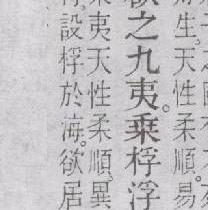 生。天性柔順。易
之九夷。乘桴浮
夷天性柔順。異
設桴於海。欲居